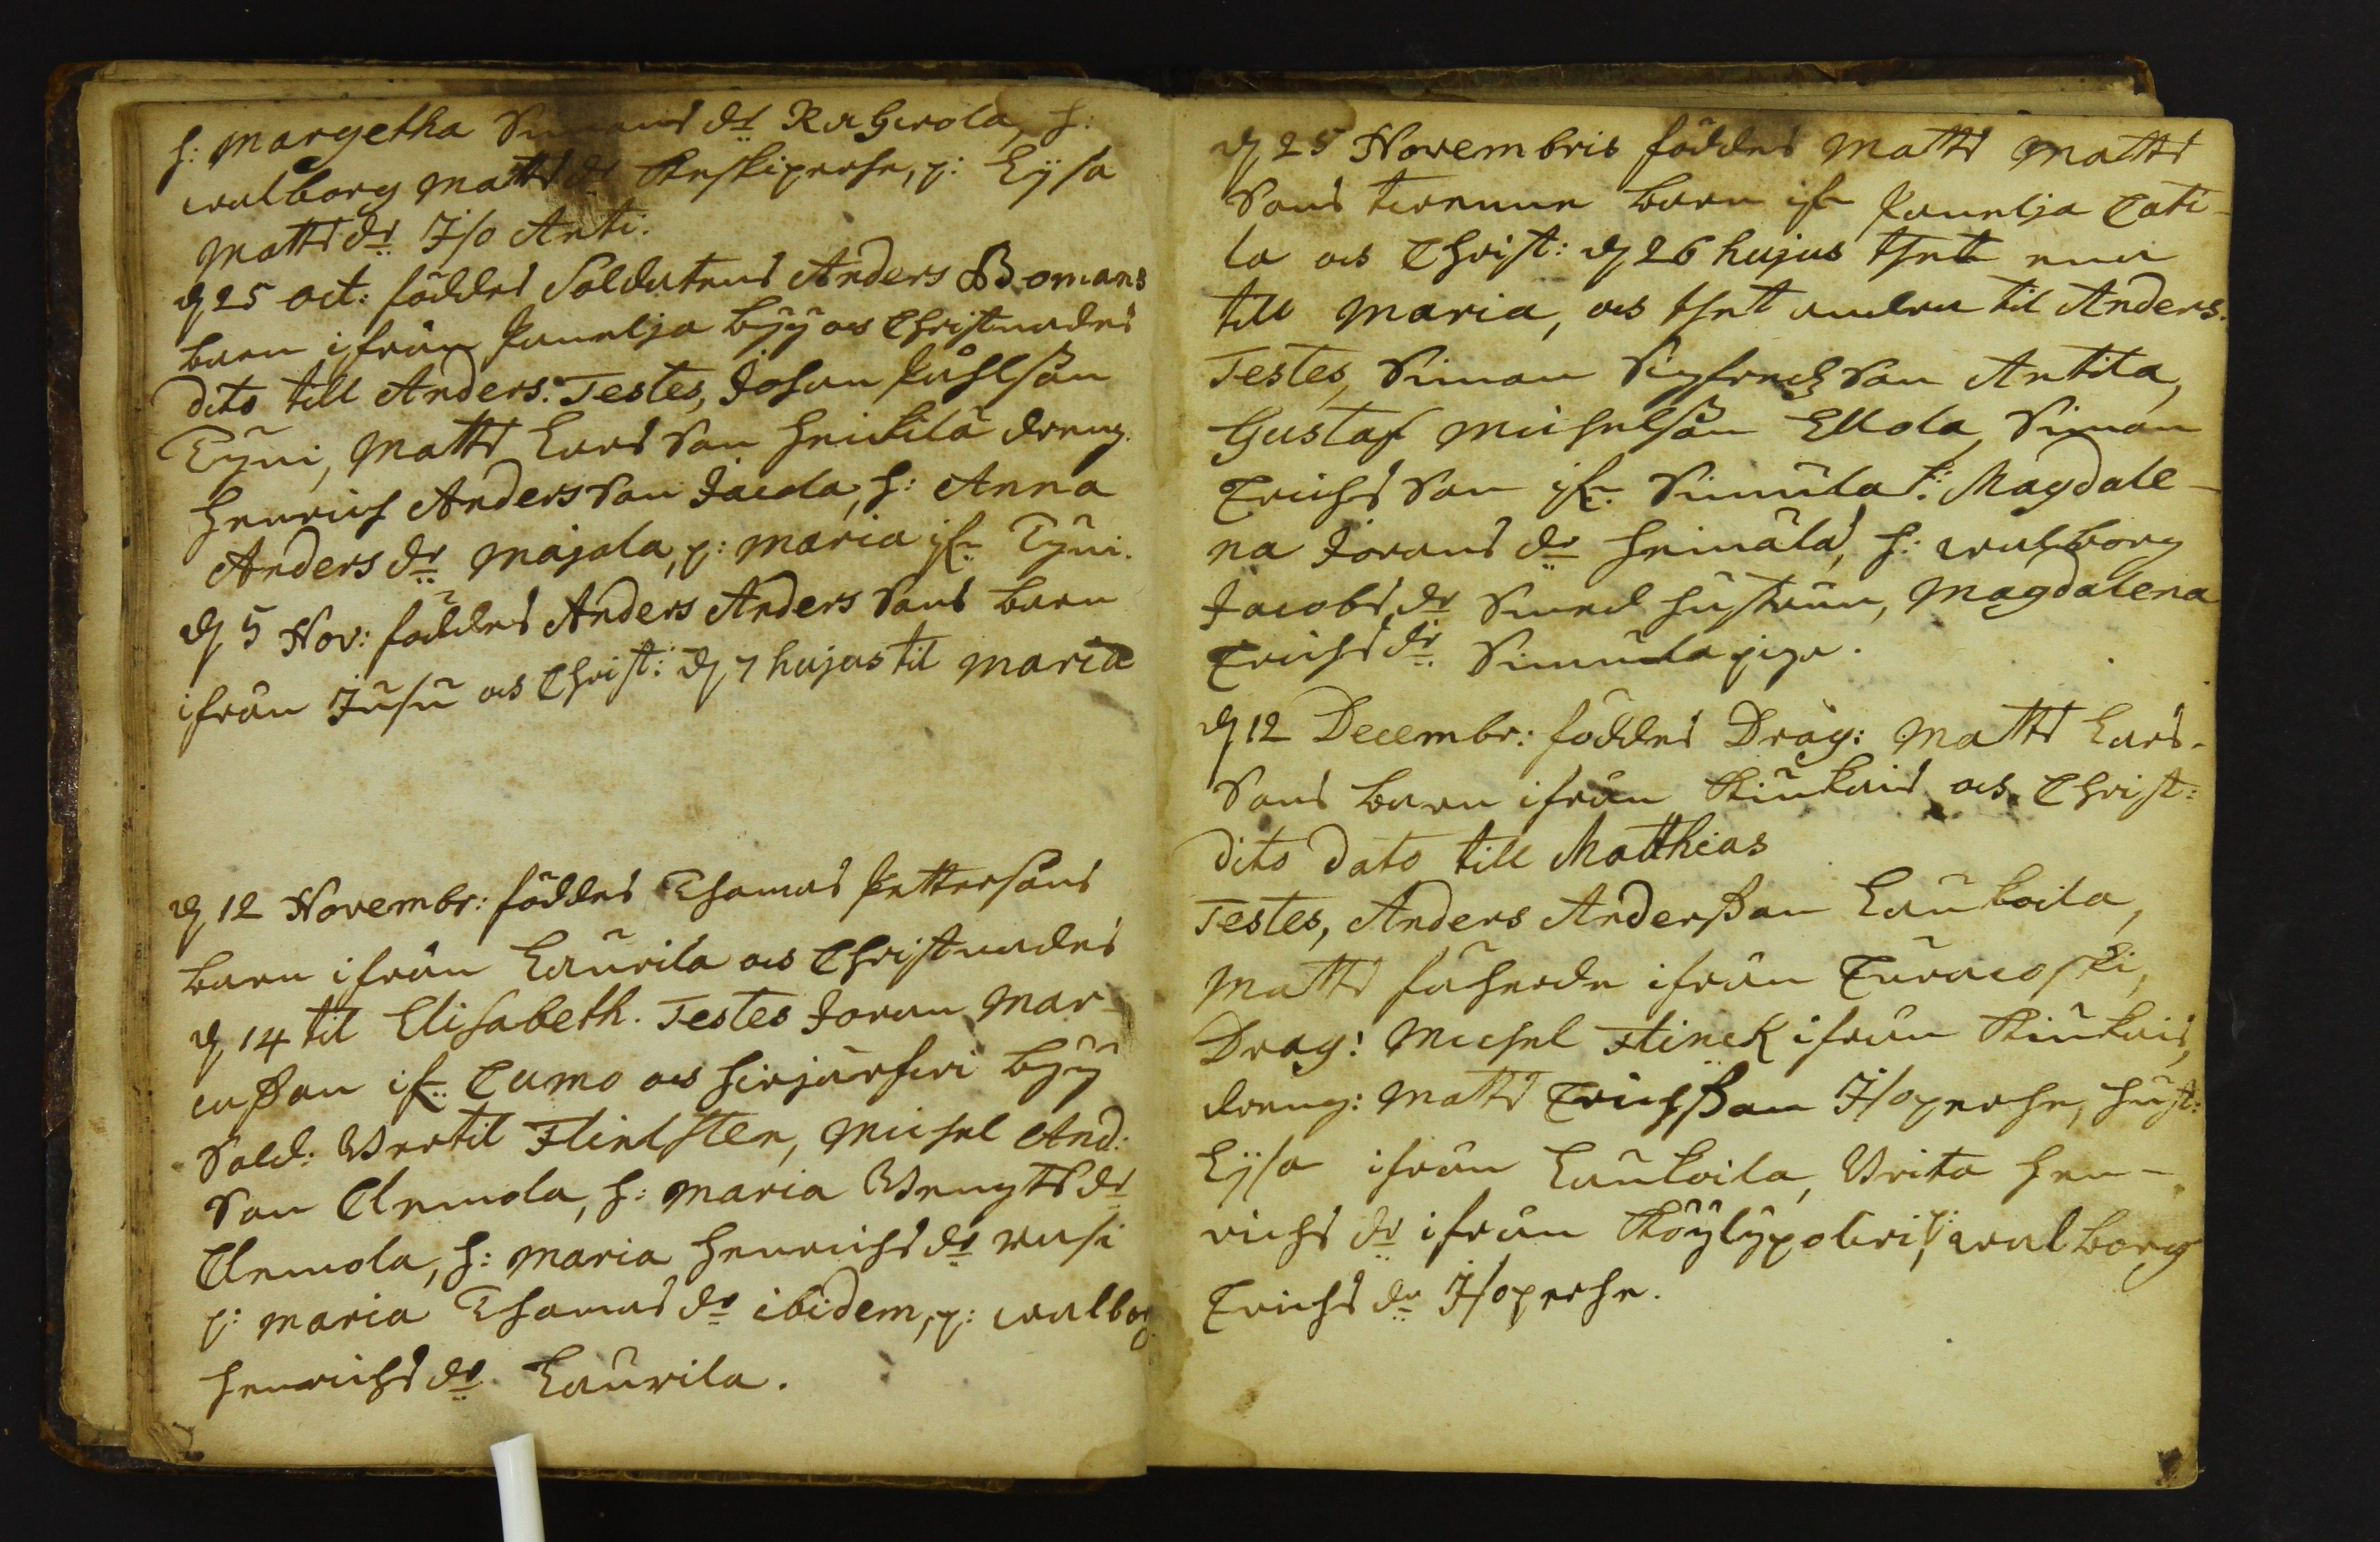 h: Margetha Simons dr Rahgvola, h:
walborg Matts dr Keskiperhe, p: Lijsa
Matts dr Iso Anti.
d 25 oct: föddes Soldatens Anders Bomans
barn ifrån Panelja byy och Christnades
dito till Anders. Testes, Johan Påhlsån
Tyni, Matts Lars Son Heickilä dreng.
Henrich Anders Son Jacola, h: Anna
Anders dr Majala, p: Maria ifr. Tyni.
d 5 Nov: föddes Anders Anders Sons barn
ifrån Jusu och Christ: d 7 hujus til Maria
d 12 Novembr: föddes Thomas Pettersåns
barn ifrån Laurila och Christnades
d 14 til Elisabeth. Testes Joran Mar-
cusson ifr. Cumo och Hirjärfwi byy
Sold: Bertil Flinksten, Michel And:
Son Clemola, h: Maria Bengts dr
Clemola, h: Maria Henrichs dr rusi
p: Maria Thomas dr ibidem, p: walborg
Henrichs dr Laurila.
d 25 Novembris föddes Matts Matts
Sons twenne barn ifr Panelja Cati-
la och Christ: d 26 hujus thet ena
till Maria, och thet andra til Anders.
Testes, Simon Sigfredz Son Antila,
Gustaf Michelsån Ellola, Simon
Erichs Son ifr. Simula h: Magdale-
na Jorans dr Heimala, h: walborg
Jacobs dr Smed hustrun, Magdalena
Erichs dr Simula piga.
d 12 Decembr: föddes Drag: Matts Lars-
Sons barn ifrån Kiukais och Christ:
dito dato till Matthias
Testes, Anders Andersson Laukoila,
Matts fåherde ifrån Euracoski,
Drag: Michel Flinck ifrån Kiukais,
dreng: Matts Erichsson Isoperhe, hust:
Lijsa ifrån Laukoila, Brita Hen-
richs dr ifrån Köylypolwi, p: walborg
Erichs dr Isoperhe.